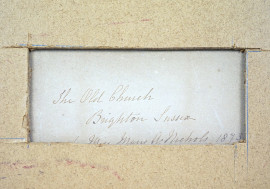 The Old Church
Brighton Sussex
Miss Mary A. Nichols, 1873